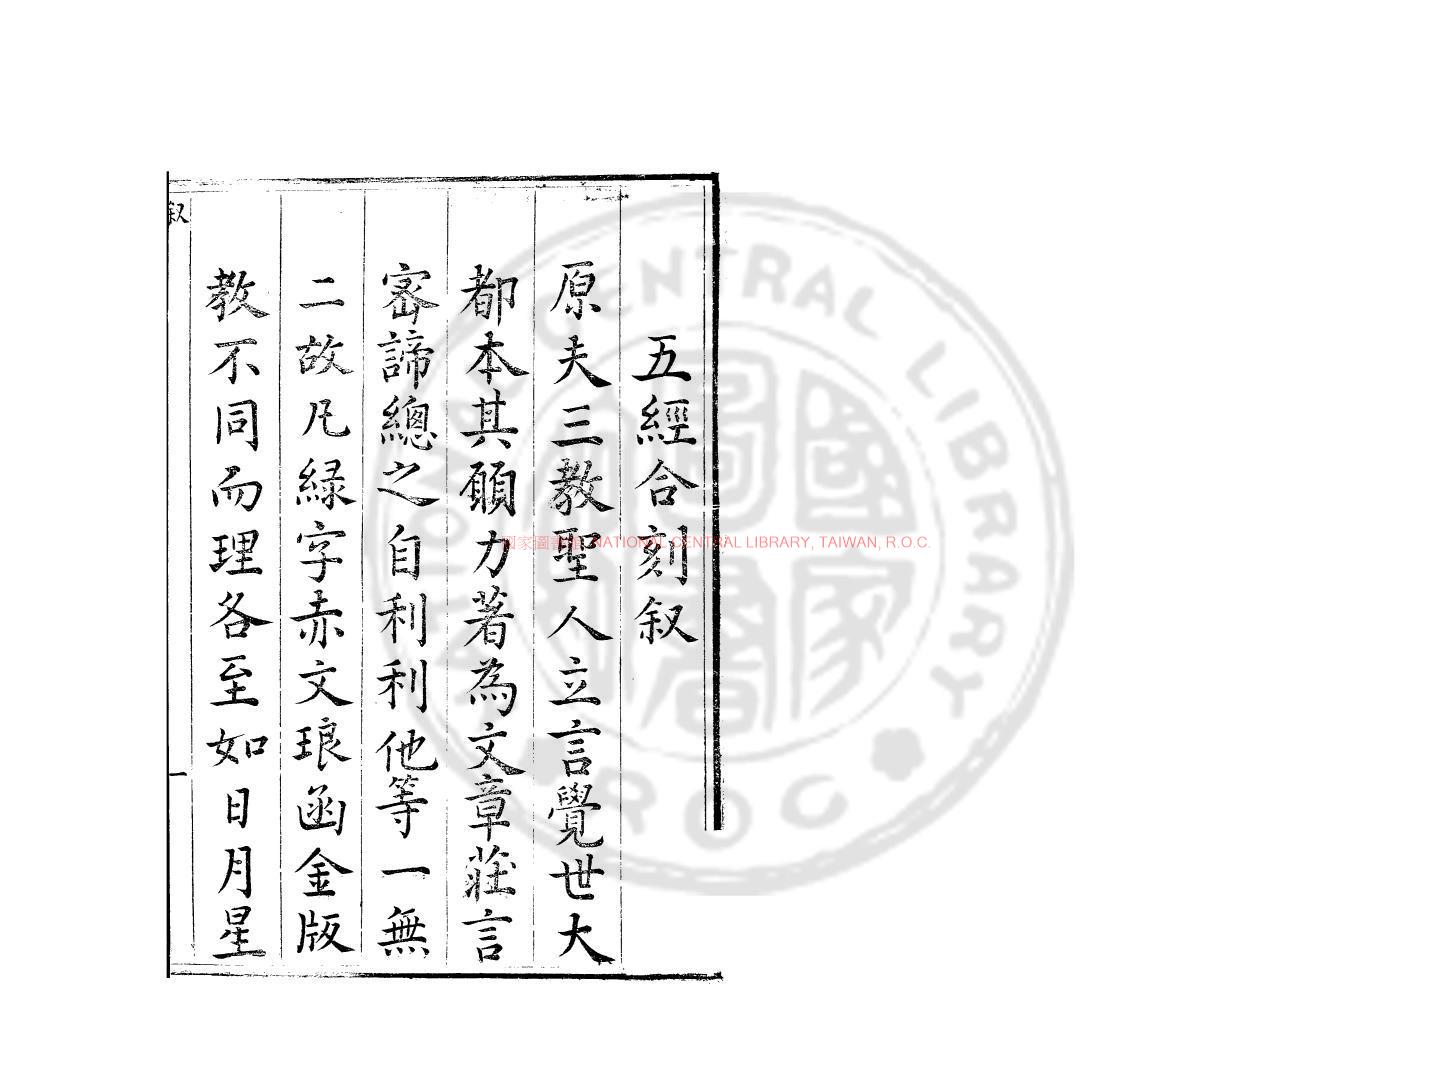 五經合刻叙
原夫三教聖人立言覺世大
都本其願力著為文章莊言
密諦總之自利利他等一無
二故凡緑字赤文琅函金版
教不同而理各至如日月星
叙
一
國家圖書館 NATIONAL CENTRAL LIBRARY, TAIWAN, R.O.C.
NATIONAL CENTRAL LIBRARY
ROC
國家圖書